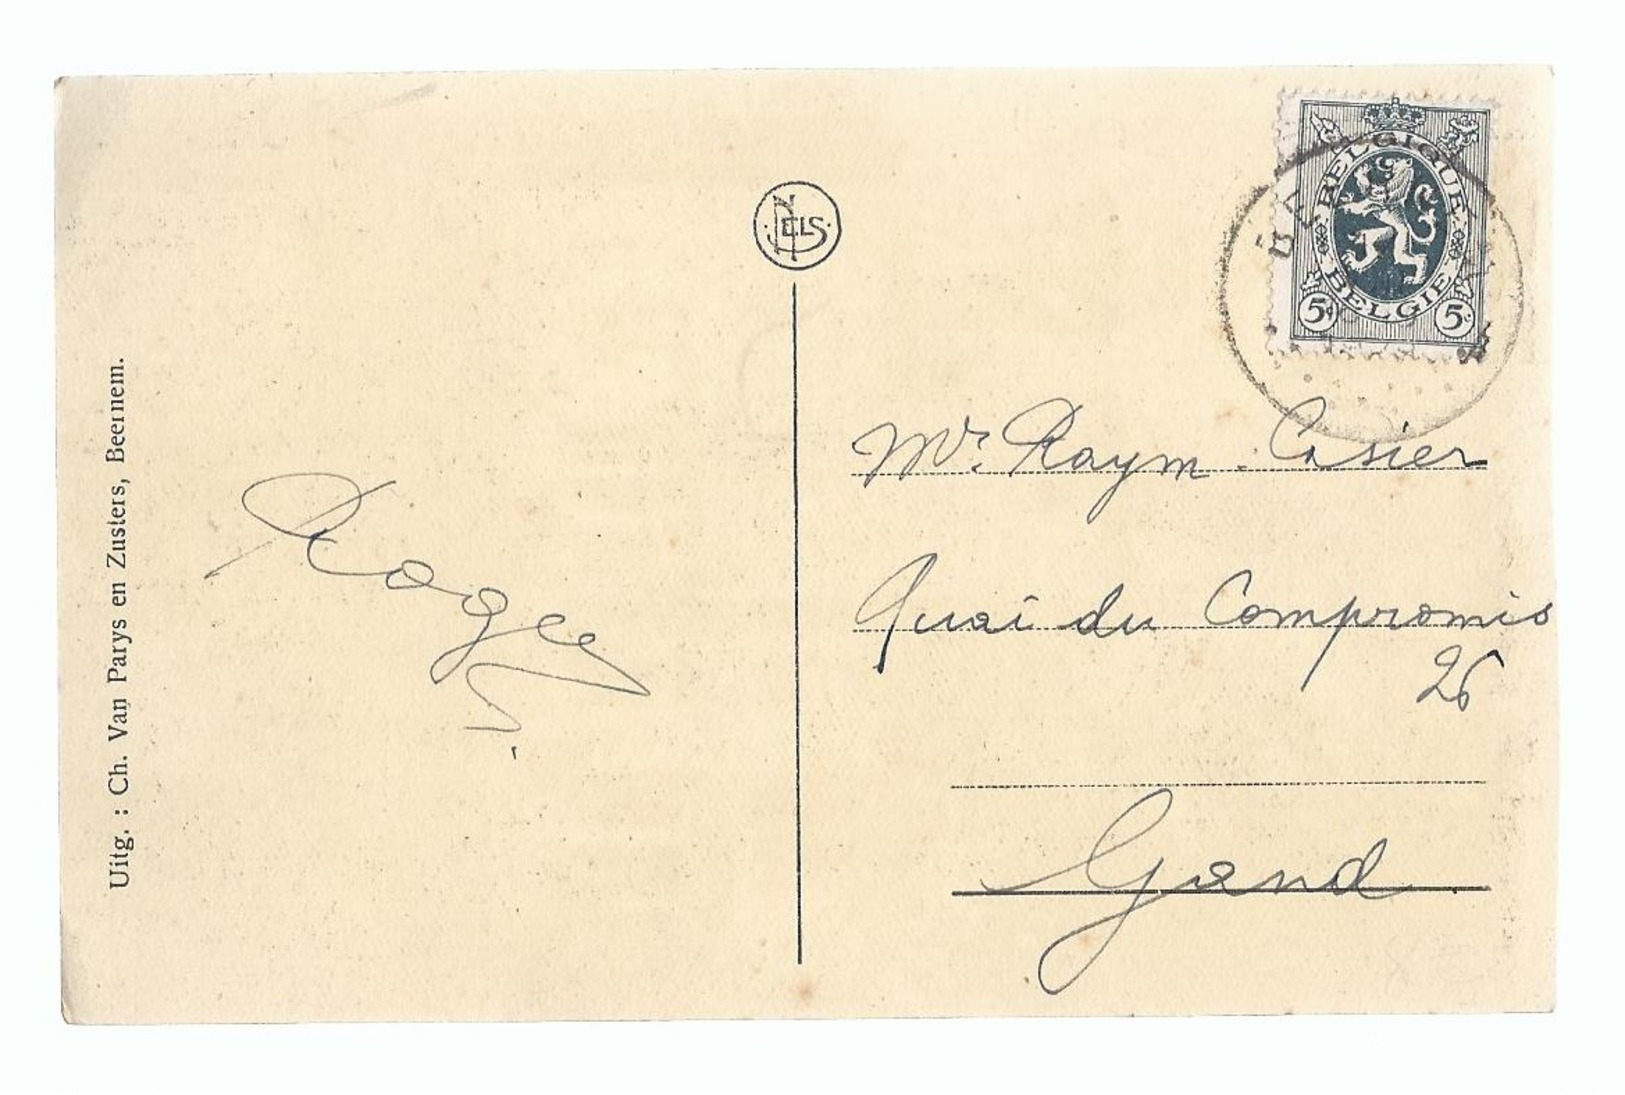 BELGIQUE
BELGIË
5c 5c
NELS
Uitg. : Ch. Van Parys en Zusters, Beernem.
Roger
Mr. Raym. Casier
Quai du Compromis
26
Gand